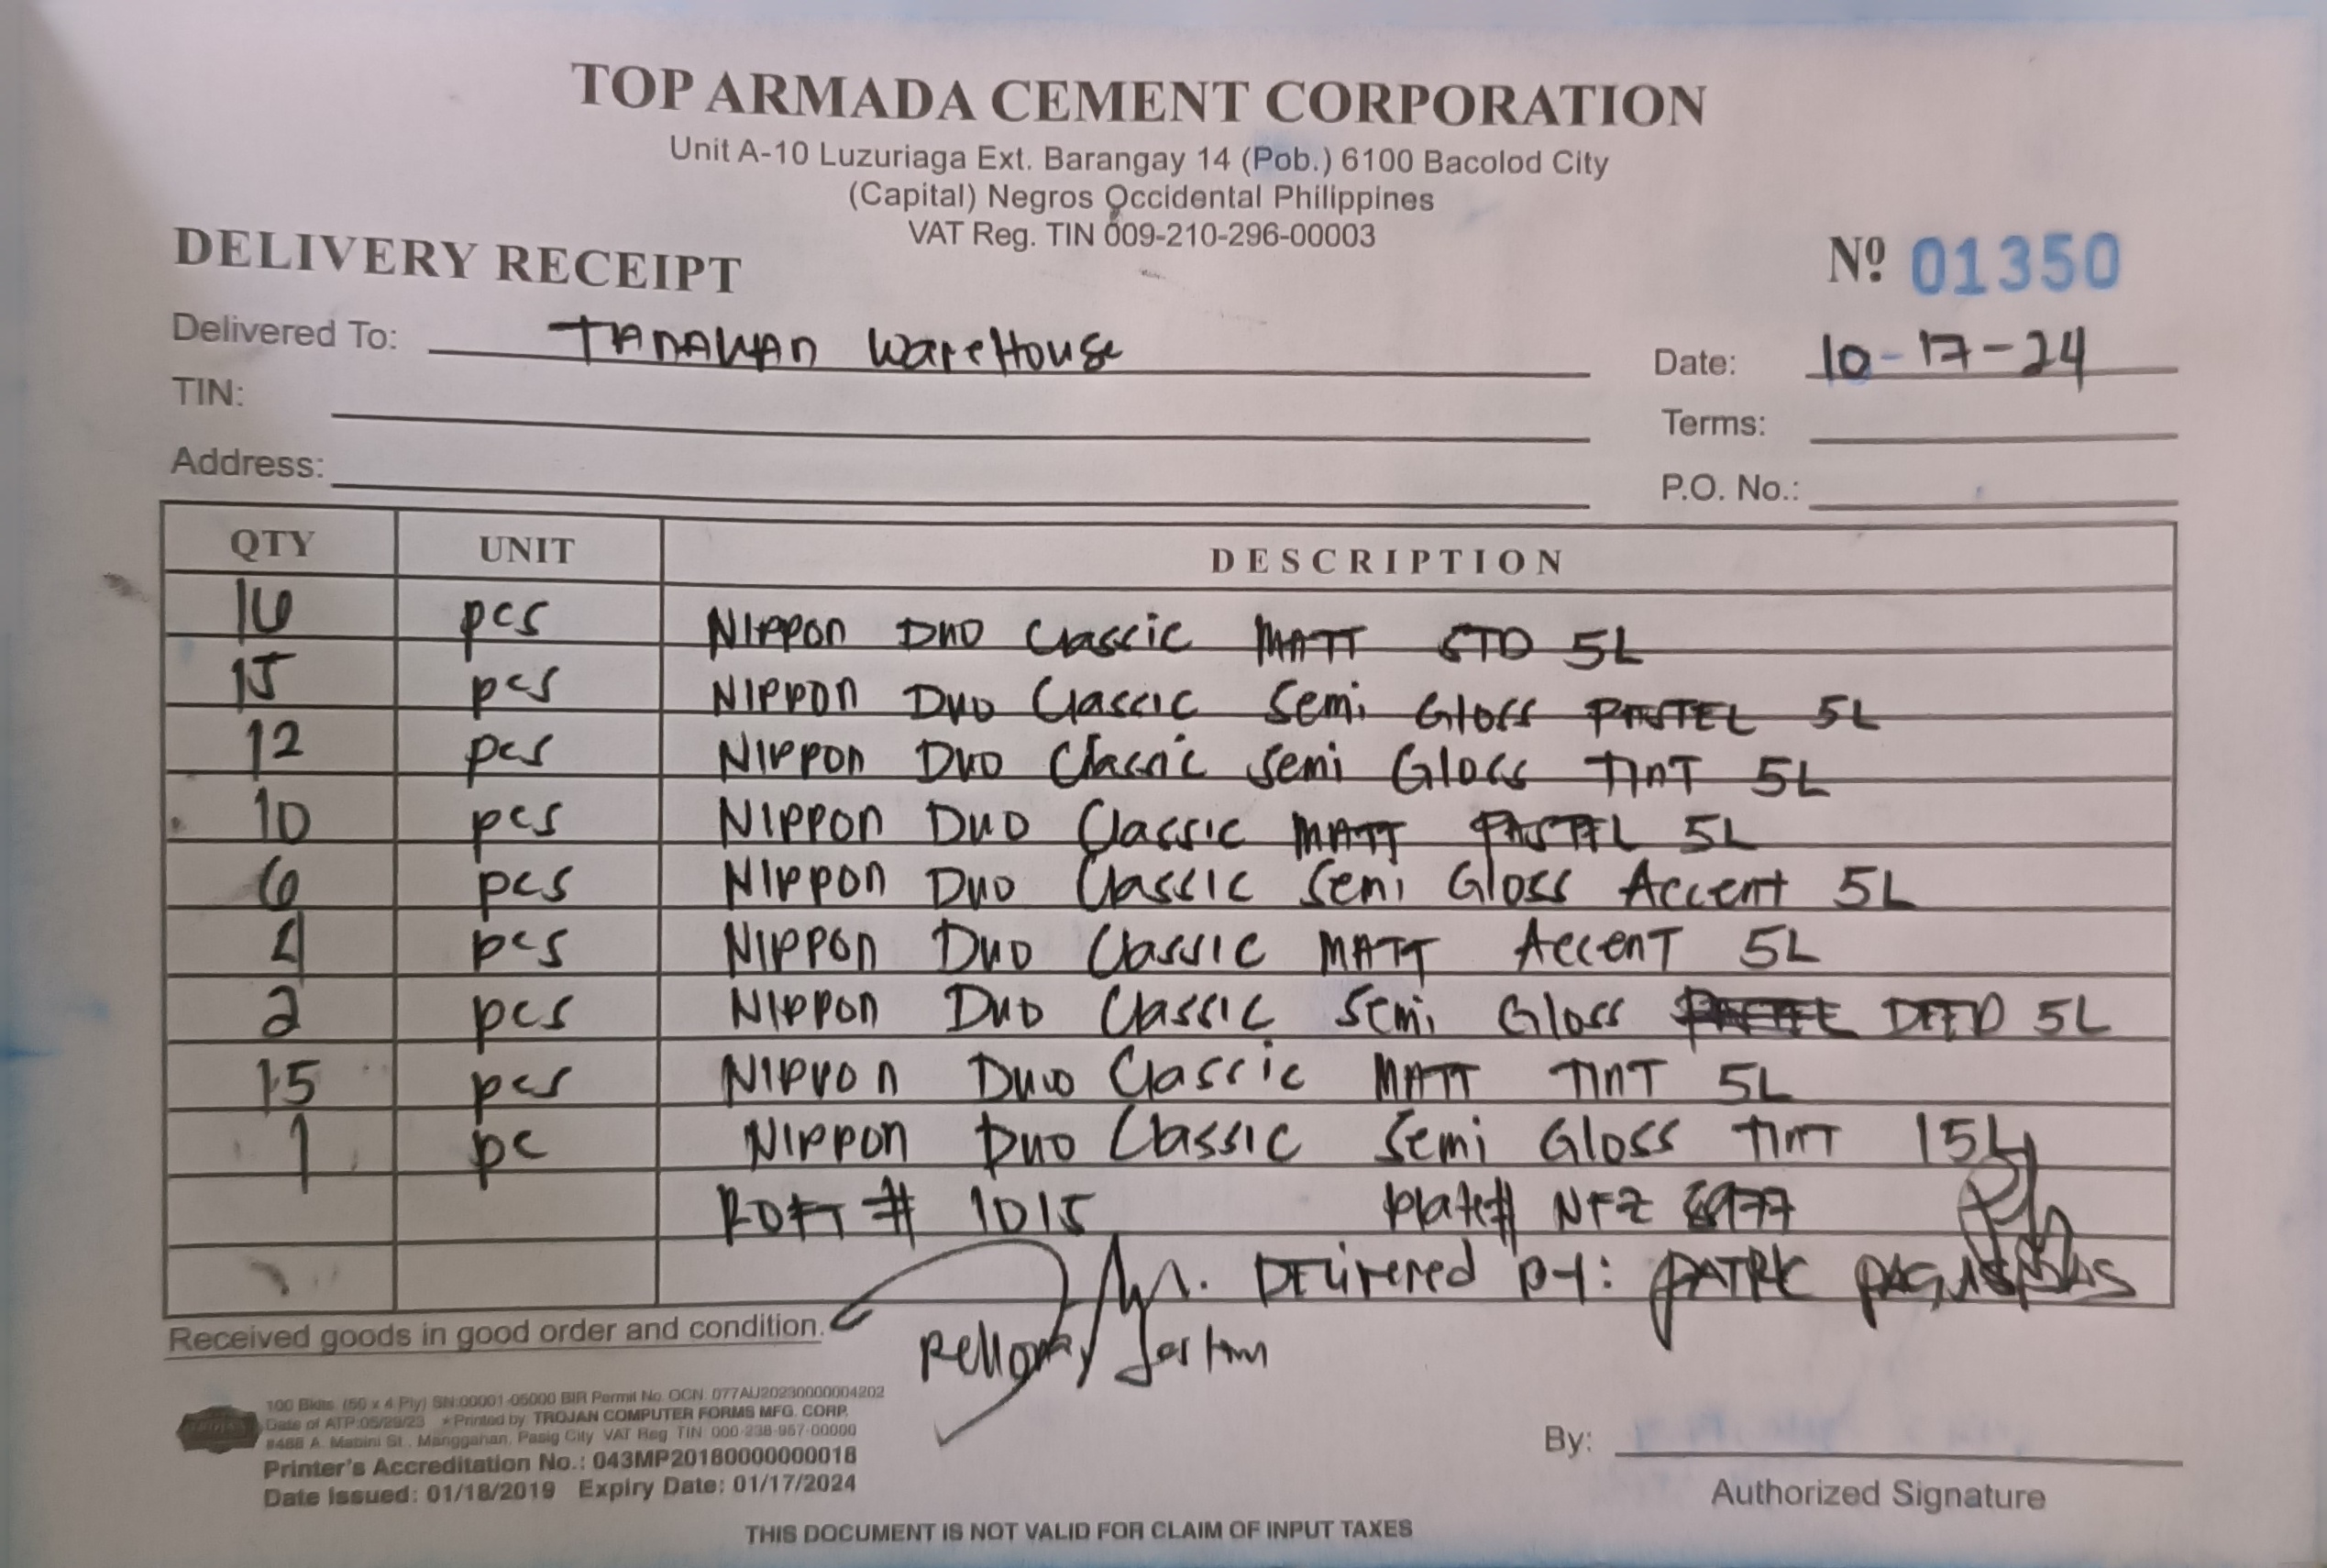 TOP ARMADA CEMENT CORPORATION
Unit A-10 Luzuriaga Ext. Barangay 14 (Pob.) 6100 Bacolod City
(Capital) Negros Occidental Philippines
VAT Reg. TIN 009-210-296-00003
DELIVERY RECEIPT
Nº 01350
Delivered To: TANAWAN WareHouse
Date: 10-17-24
TIN:
Terms:
Address:
P.O. No.:
QTY UNIT DESCRIPTION
16 pcs NIPPON DUO Classic MATT STD 5L
15 pcs NIPPON DUO Classic Semi Gloss PASTEL 5L
12 pcs NIPPON DUO Classic Semi Gloss TINT 5L
10 pcs NIPPON DUO Classic MATT PASTEL 5L
6 pcs NIPPON DUO Classic Semi Gloss Accent 5L
4 pcs NIPPON DUO Classic MATT Accent 5L
2 pcs NIPPON DUO Classic Semi Gloss DEED 5L
15 pcs NIPPON DUO Classic MATT TINT 5L
1 pc NIPPON DUO Classic Semi Gloss TINT 15L
# 1015 plate# NFZ 6977
Delivered By:
Received goods in good order and condition.
100 Bklts. (50 x 4 Ply) SN:00001-05000 BIR Permit No. OCN. 077AU20230000004202
Date of ATP:05/29/23 * Printed by TROJAN COMPUTER FORMS MFG. CORP.
#46B A. Mabini St., Manggahan, Pasig City VAT Reg TIN: 000-238-957-00000
Printer's Accreditation No.: 043MP20180000000018
Date Issued: 01/18/2019 Expiry Date: 01/17/2024
By:
Authorized Signature
THIS DOCUMENT IS NOT VALID FOR CLAIM OF INPUT TAXES